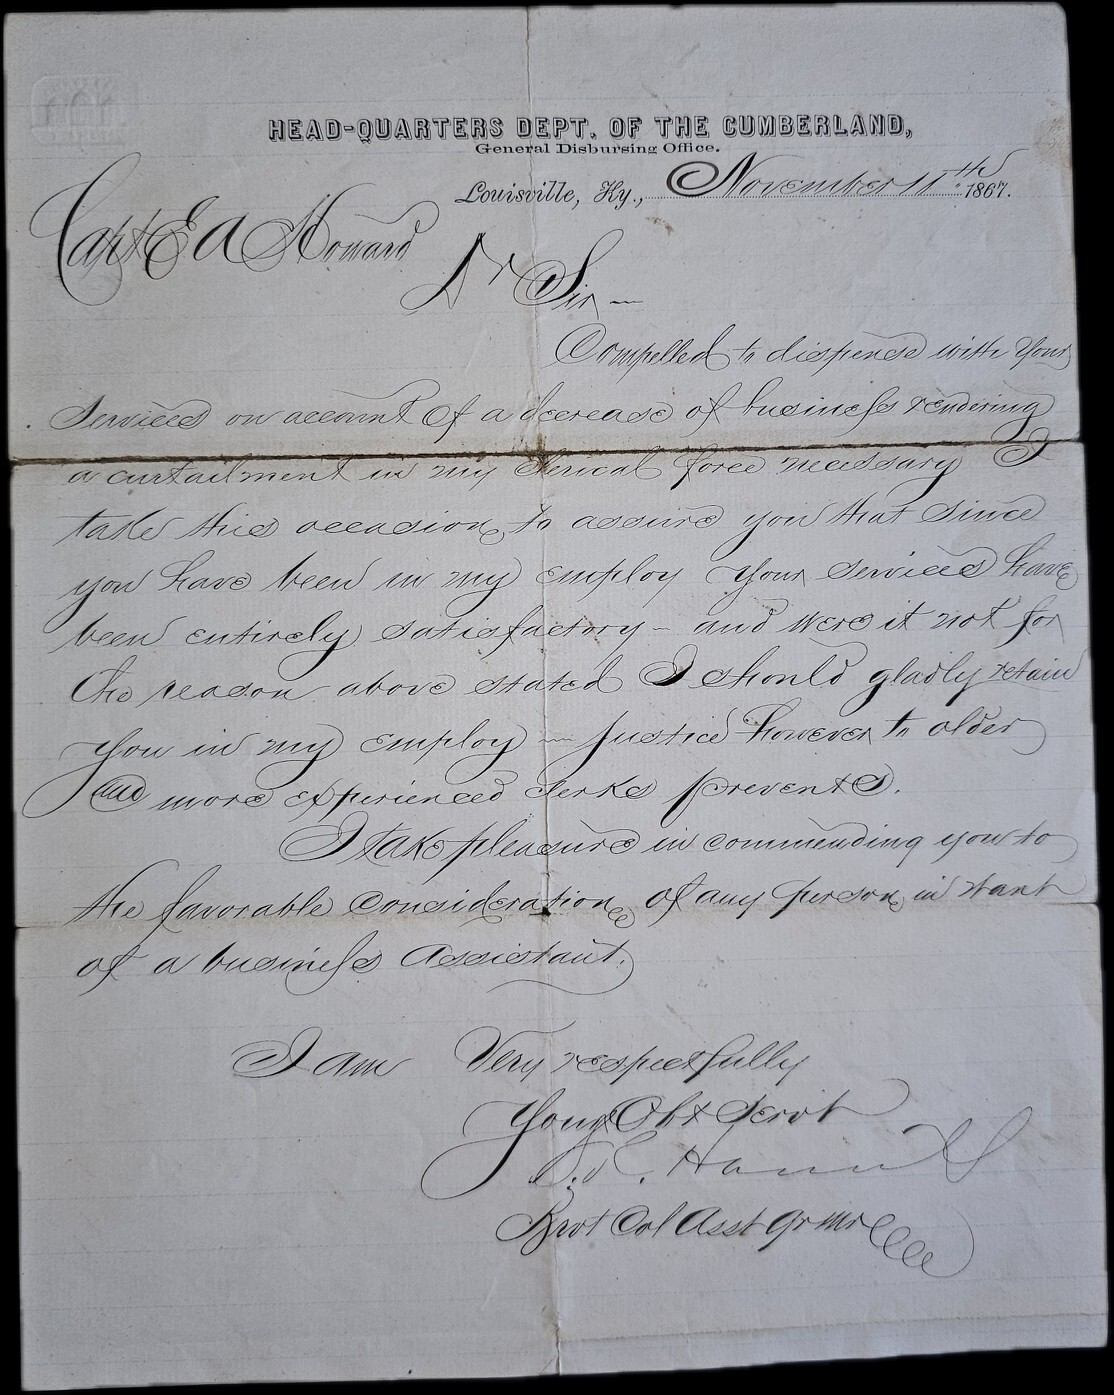 HEAD-QUARTERS DEPT. OF THE CUMBERLAND,
General Disbursing Office.
Louisville, Ky., November 11th 1867.
Capt E A Howard
Dr Sir —
Compelled to dispense with Your
Services on account Of a decrease of business rendering
a curtailment in my Clerical force necessary I
take this occasion to assure you that Since
you have been in my employ Your Services have
been entirely satisfactory — and were it not for
the reason above stated I should gladly retain
You in my employ — justice however to older
and more experienced Clerks prevents.
I take pleasure in commending you to
the favorable Consideration of any person in want
of a business Assistant.
I am Very respectfully
Your Obt Servt
Brvt Col Asst Qr Mr